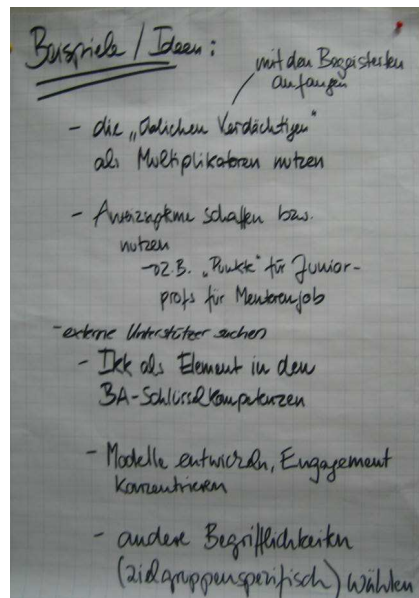 Beispiele / Ideen:
mit den Begeisterten
anfangen
- die „üblichen Verdächtigen"
als Multiplikatoren nutzen
- Anreizsysteme schaffen bzw.
nutzen
→ z.B. „Punkte" für Junior-
profs für Mentorenjob
- externe Unterstützer suchen
- Ikk als Element in den
BA-Schlüsselkompetenzen
- Modelle entwickeln, Engagement
konzentrieren
- andere Begrifflichkeiten
(zielgruppenspezifisch) wählen